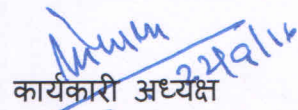 22/9/16
कार्यकारी अध्यक्ष